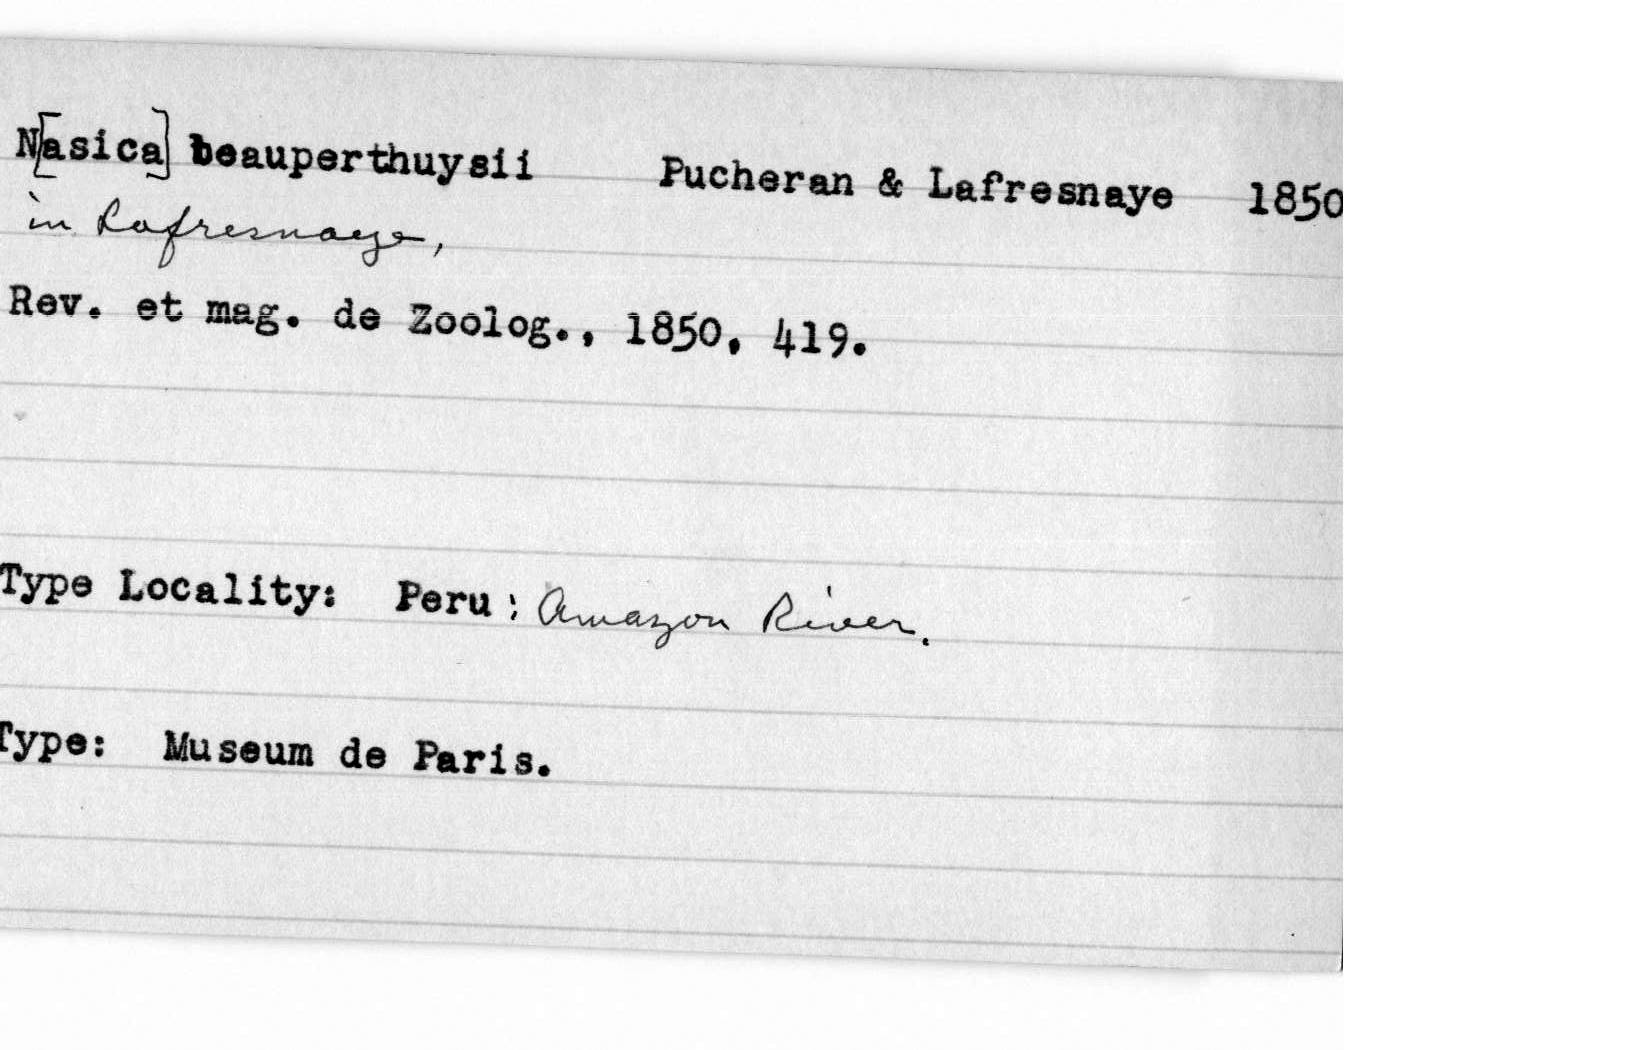 N[asica] beauperthuysii Pucheran & Lafresnaye 1850
in Lafresnaye,
Rev. et mag. de Zoolog., 1850, 419.
Type Locality: Peru: Amazon River.
Type: Museum de Paris.